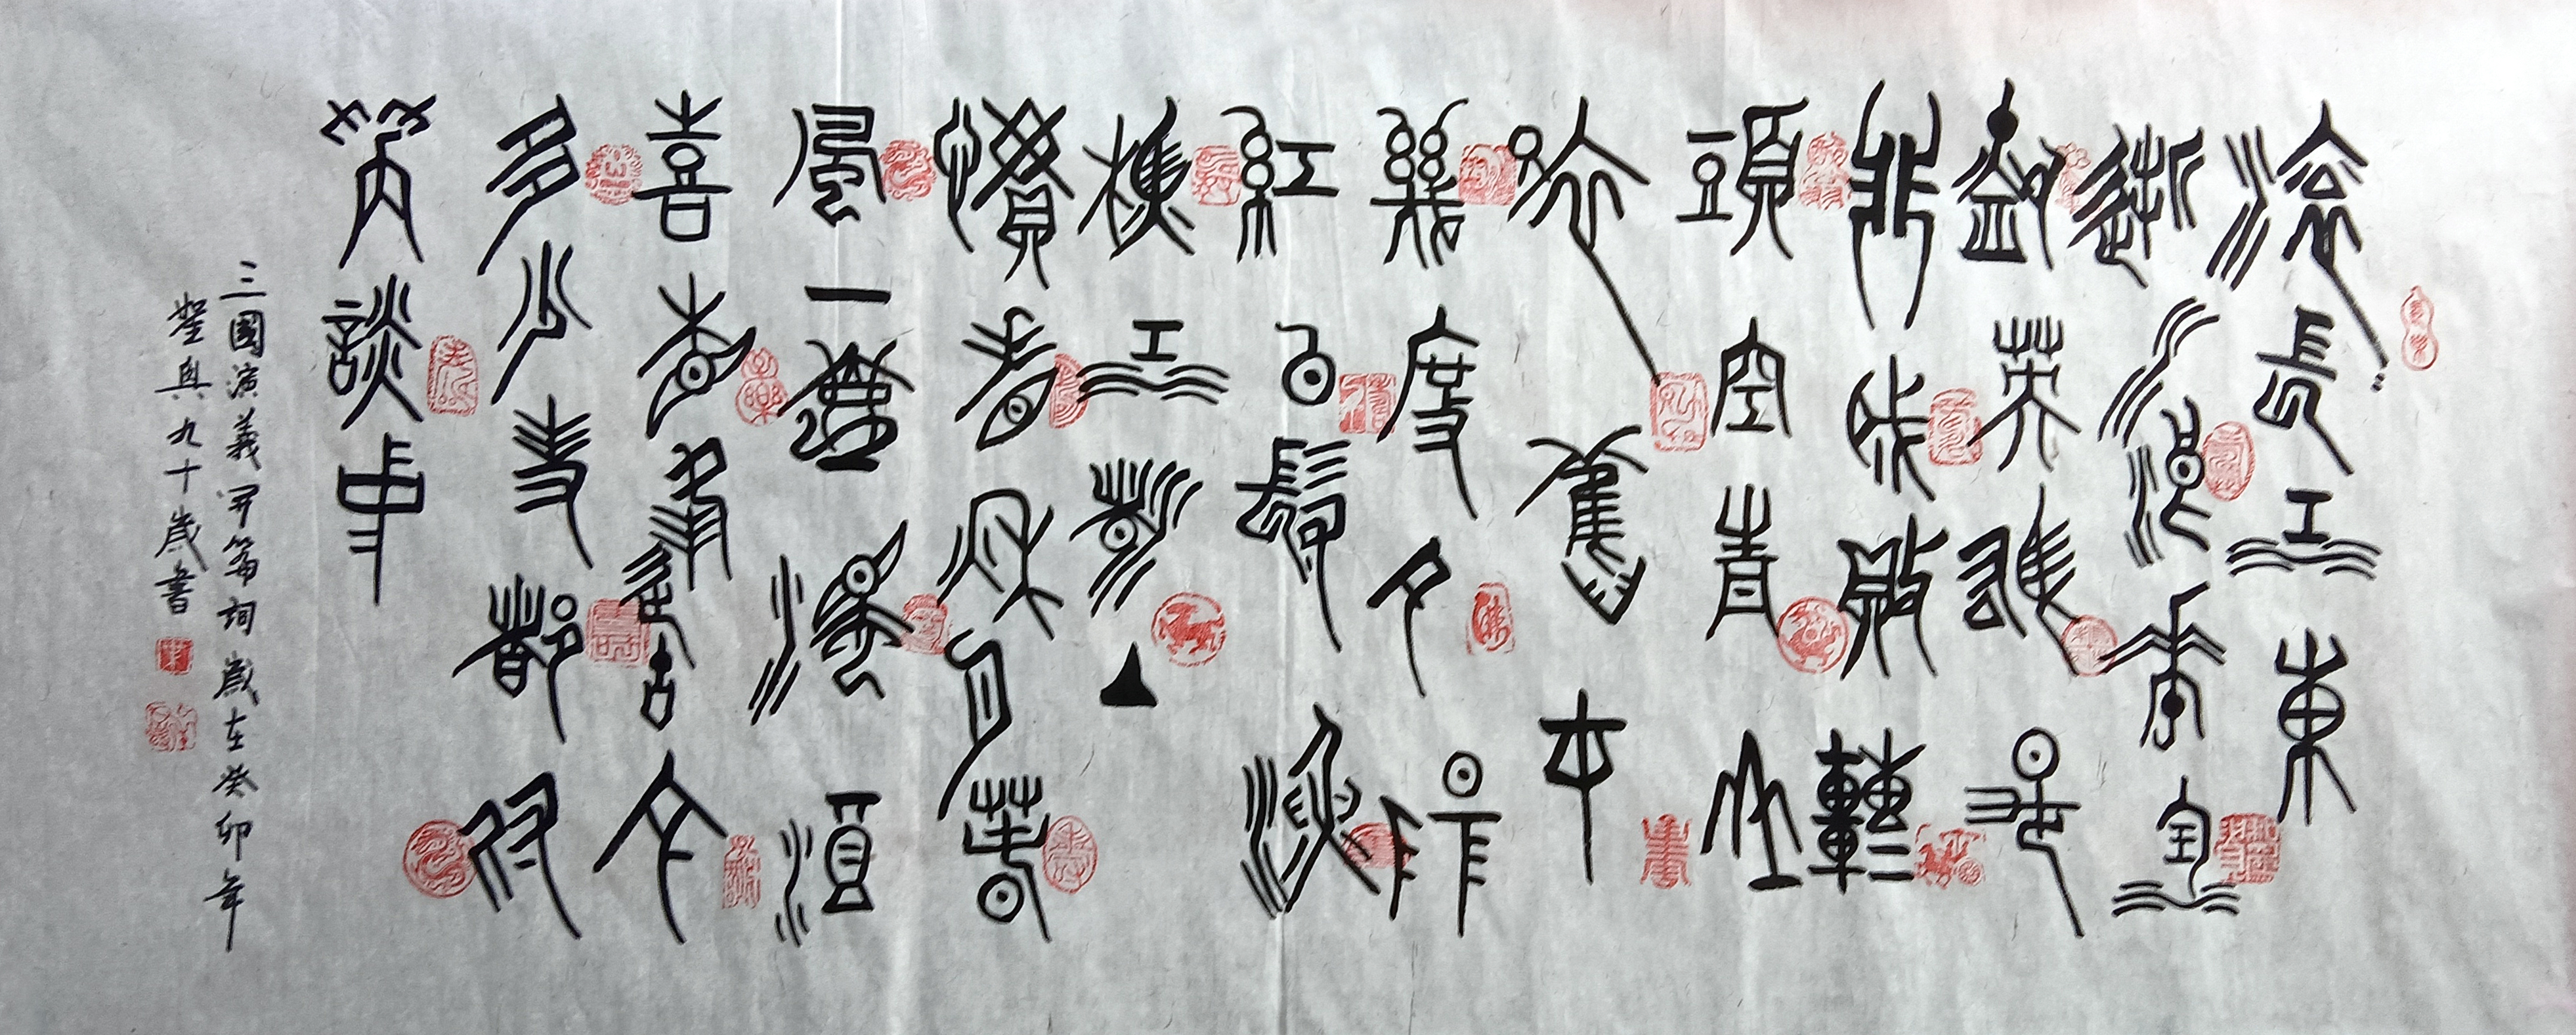 滾〻長江東
逝水浪花淘
盡英雄是
非成敗轉
頭空青山
依舊在
幾度夕陽
紅白髮漁
樵江渚上
慣看秋月春
風一壺濁酒
喜相逢古今
多少事都付
笑談中
三國演義開篇詞 歲在癸卯年
九十歲書